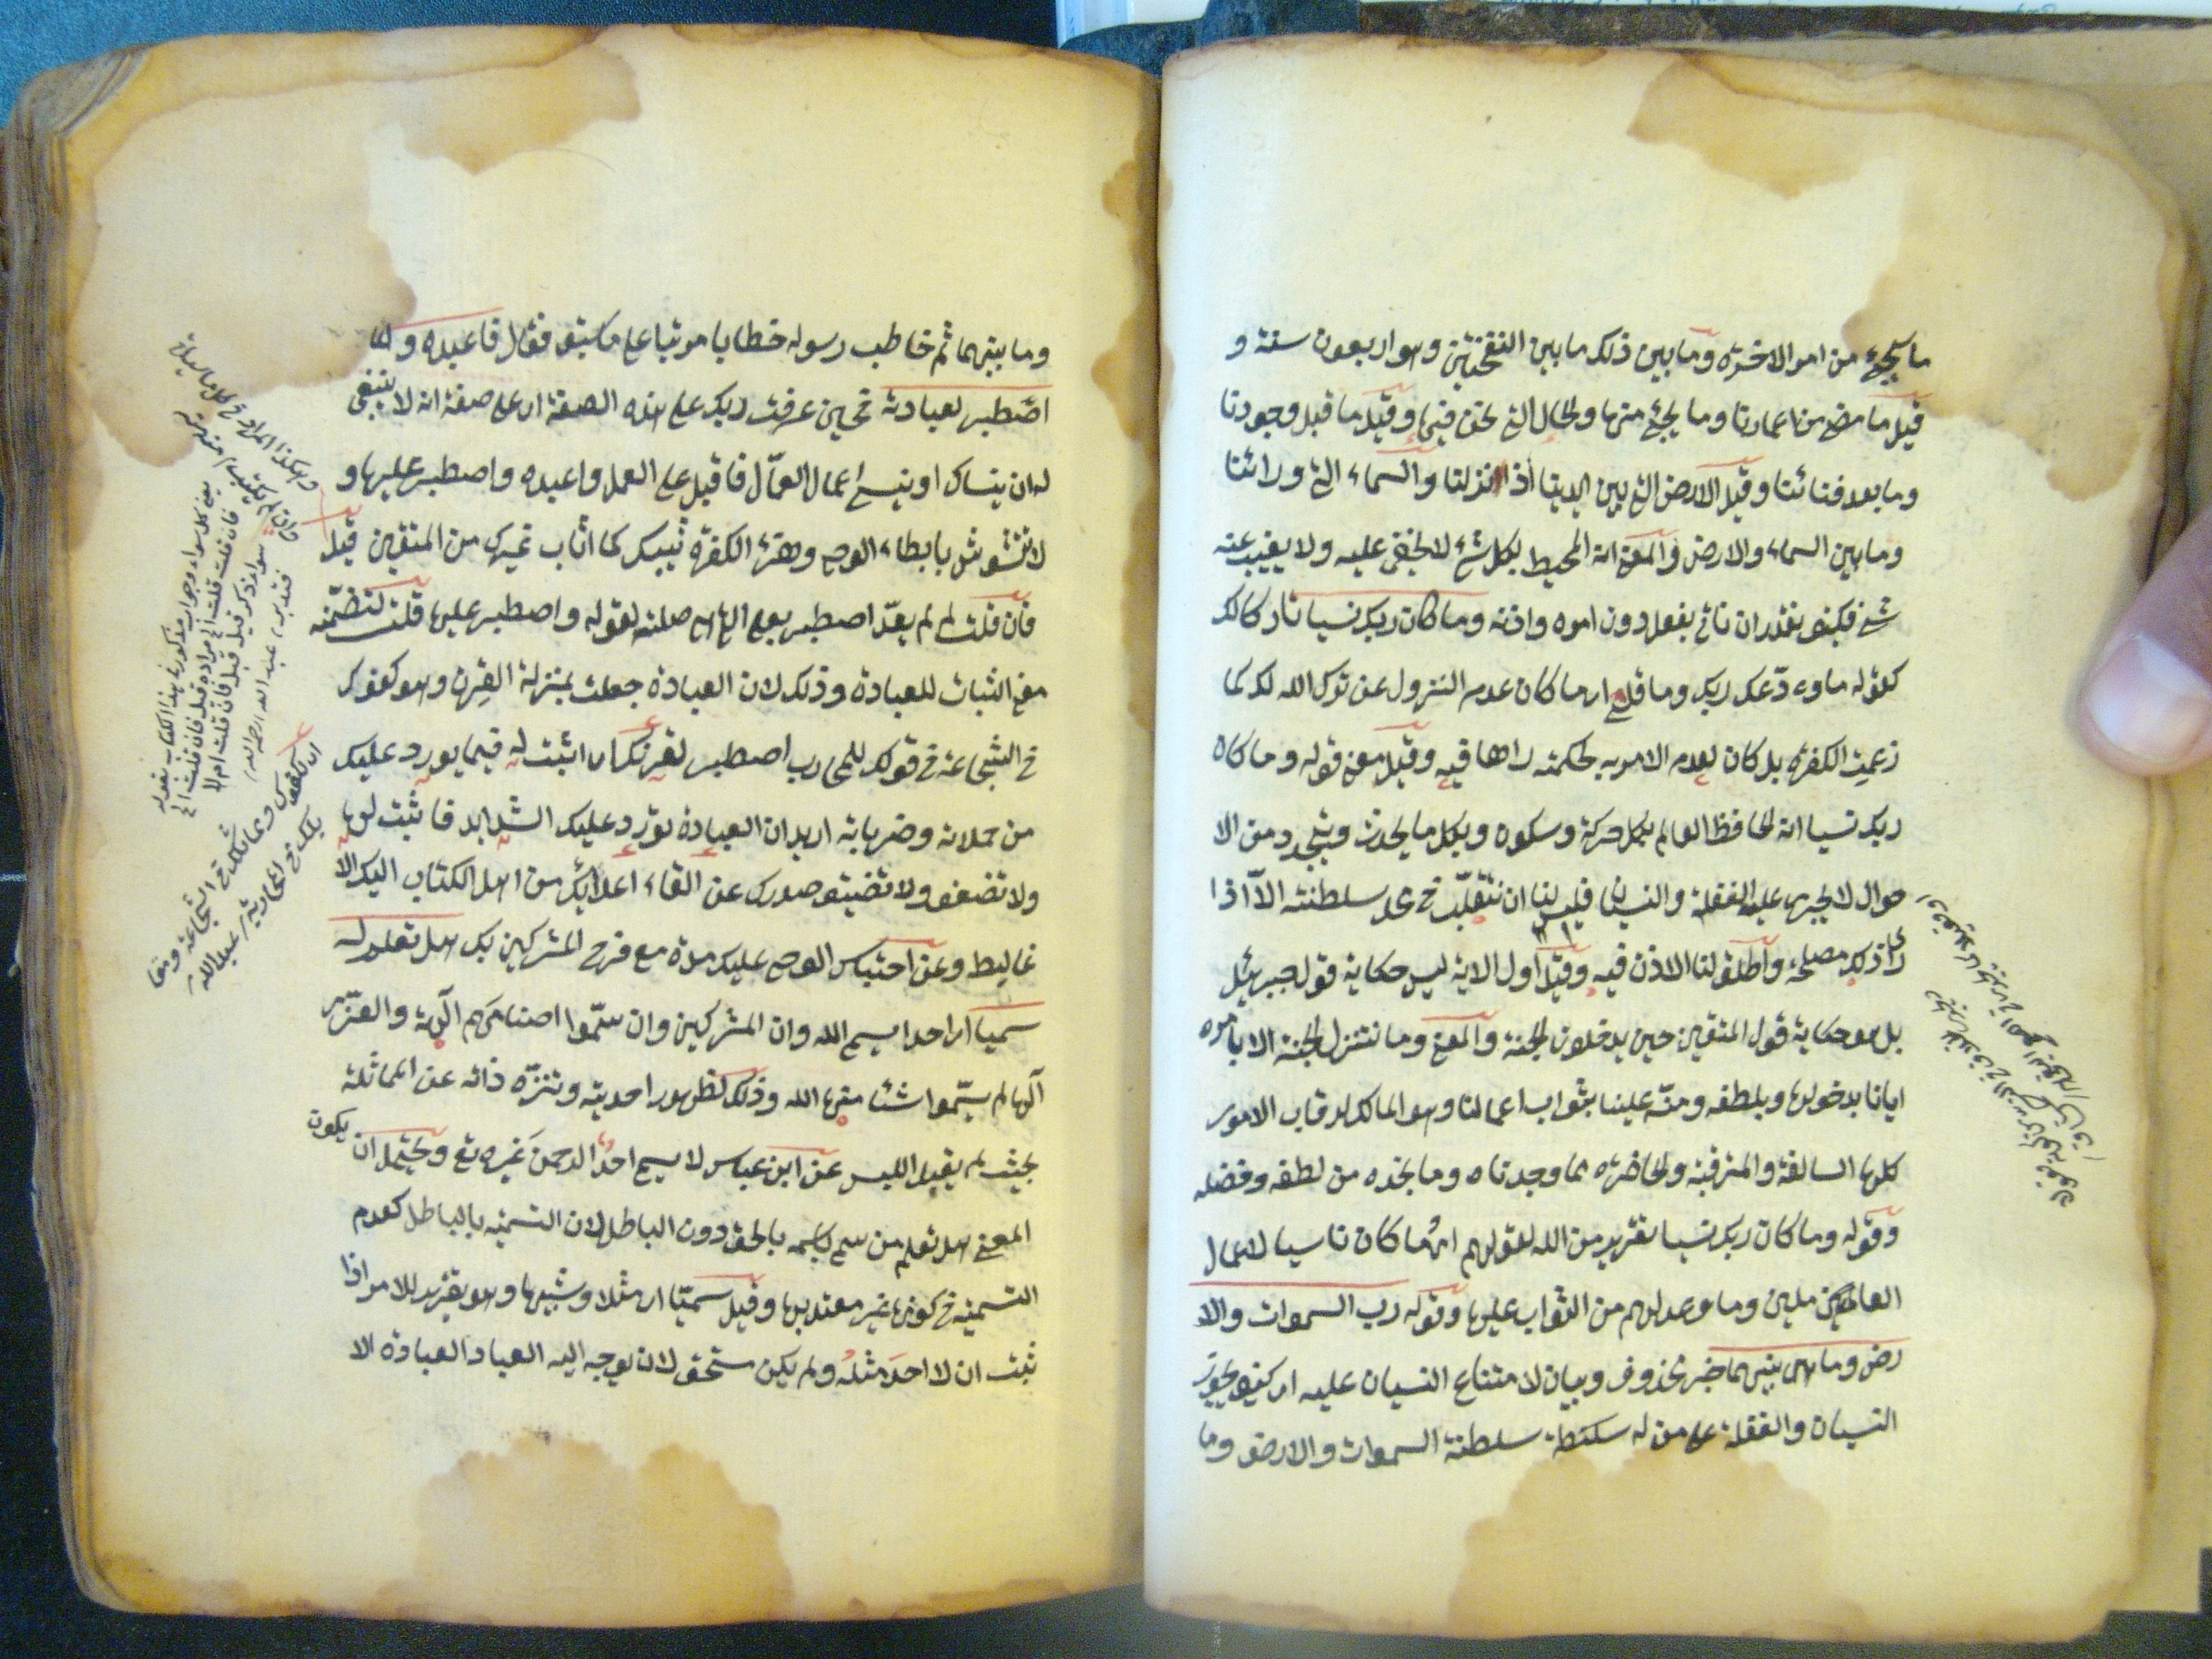 ما يجئ من امر الاخرة وما بين ذلك ما بين النفختين وهو اربعون سنة و
قيل ما مضى من اعمارنا وما يجئ منها والحال التي نحن فيها وقيل ما قبل وجودنا
وما بعد فنائنا وقيل الارض التي بين ايدينا اذا نزلنا والسماء التي ورائنا
وما بين السماء والارض والمعنى انه المحيط بكل شئ لا يخفى عليه ولا يغيب عنه
شئ فكيف نقدر ان ناتي بفعل دون امره واذنه وما كان ربك نسيا تاركا لك
كقوله ما ودعك ربك وما قلى اى ما كان عدم النزول عن ترك الله لك كما
زعمت الكفرة بل كان لعدم الامر به لحكمة راها فيه وقيل معنى قوله وما كان
ربك نسيا انه الحافظ العالم بكل حركة وسكون وبكل ما يحدث ويتجدد من الا
حوال لا يجوز عليه الغفلة والنسيان فليس لنا ان نتقلب في محل سلطنته الا اذا
راى ذلك مصلحة واطلق لنا الاذن فيه وقيل اول الاية ليس حكاية قول جبرئيل
بل هو حكاية قول المتقين حين يدخلون الجنة والمعنى وما نتنزل الجنة الا بامره
ايانا بدخولها وبلطفه ومنه علينا بثواب اعمالنا وهو المالك لرقاب الامور
كلها السالفة والمترقبة والحاضرة فما وجدناه وما نجده من لطفه وفضله
وقوله وما كان ربك نسيا تقرير من الله لقولهم اى ما كان ناسيا لاعمال
العاملين وما وعد لهم من الثواب عليها وقوله رب السموات والا
رض وما بينهما خبر محذوف وبيان لامتناع النسيان عليه اى كيف يجوز
النسيان والغفلة على من له سلطنة السموات والارض وما
وما بينهما ثم خاطب رسوله خطابا مرتبا على ما سبق فقال فاعبده و
اصطبر لعبادته اى حين عرفت ربك على هذه الصفة اى على صفة انه لا ينبغى
له ان ينساك او ينسى اعمال العمال فاقبل على العمل واعبده واصطبر عليها و
لا تتشوش بابطاء الوحى وهزء الكفرة يثيبك كما اثاب غيرك من المتقين قيل
فان قلت لم لم يعد اصطبر بعلى التي هى صلته لقوله واصطبر عليها قلت لتضمنه
معنى الثبات للعبادة وذلك لان العبادة جعلت بمنزلة القرن وهو كفوك
فى الشجاعة فى قولك للمحارب اصطبر لقرنك اى اثبت له فيما يورد عليك
من حملاته وضرباته اريد ان العبادة تورد عليك الشدايد فاثبت لها
ولا تضعف ولا تضيق صدرك عن القاء اعدائك من اهل الكتاب اليك الا
غاليط وعن احتباس الوحى عليك مدة مع فرح المشركين بك هل تعلم له
سميا اى احدا يسمى الله وان المشركين وان سموا اصنامهم آلهة والعزى
آلها لم يسموا شئا منها الله وذلك لظهور احديته وتنزه ذاته عن المماثلة
بحيث لم يقبل اللبس عن ابن عباس لا يسمى احد الرحمن غيره تع ويحتمل ان يكون
المعنى هل تعلم من سمى باسمه بالحق دون الباطل لان التسمية بالباطل كعدم
التسمية فى كونها غير معتد بها وقيل سميا اى مثلا وشبيها وهو تقرير للامر اذا
ثبت ان لا احد مثله ولم يكن مستحق لان يوجه اليه العباد العبادة الا